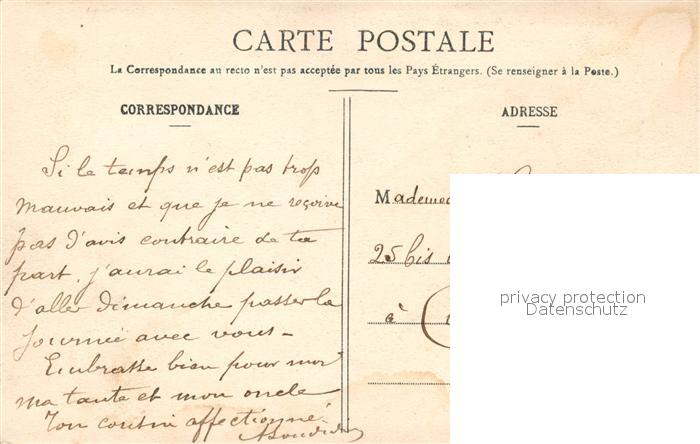 CARTE POSTALE
La Correspondance au recto n'est pas acceptée par tous les Pays Étrangers. (Se renseigner à la Poste.)
CORRESPONDANCE
Si le temps n'est pas trop
mauvais et que je ne reçoive
pas d'avis contraire de ta
part, j'aurai le plaisir
d'aller dimanche passer la
journée avec vous –
Embrasse bien pour moi
ma tante et mon oncle
Ton cousin affectionné
ADRESSE
Mademo
25 bis
à
privacy protection
Datenschutz